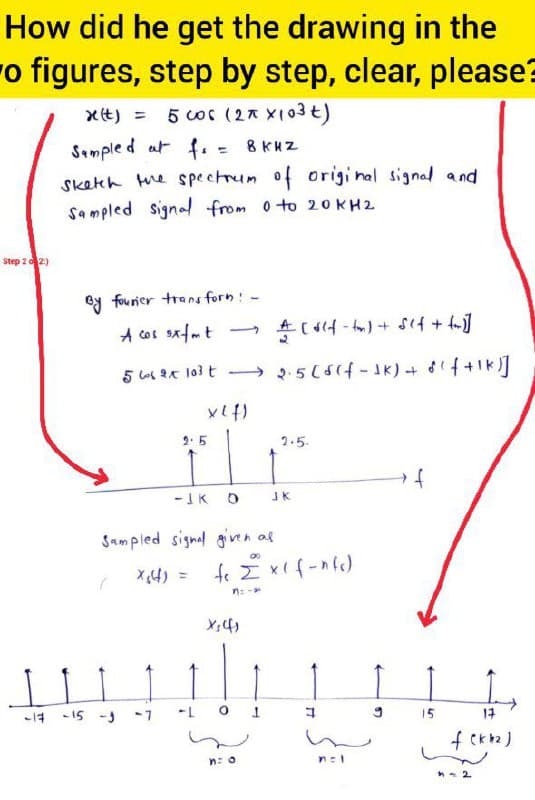 How did he get the drawing in the
o figures, step by step, clear, please?
x(t) = 5 cos (2π x10³t)
Sampled at fs = 8 KHZ
Sketch the spectrum of original signal and
sampled signal from 0 to 20 KHZ
Step 2 of 2:)
By fourier transform :-
A cos 2πfmt → A/2 [δ(f-fm) + δ(f+fm)]
5 cos 2π 10³ t → 2.5 [δ(f-1K) + δ(f+1K)]
x(f)
2.5 2.5
f
-1K 0 1K
Sampled signal given as
Xs(f) = fs ∞ Σ n=-∞ x(f-nfs)
Xs(f)
-17 -15 -9 -7 -1 0 1 7 9 15 17
f (KHz)
n=0 n=1 n=2